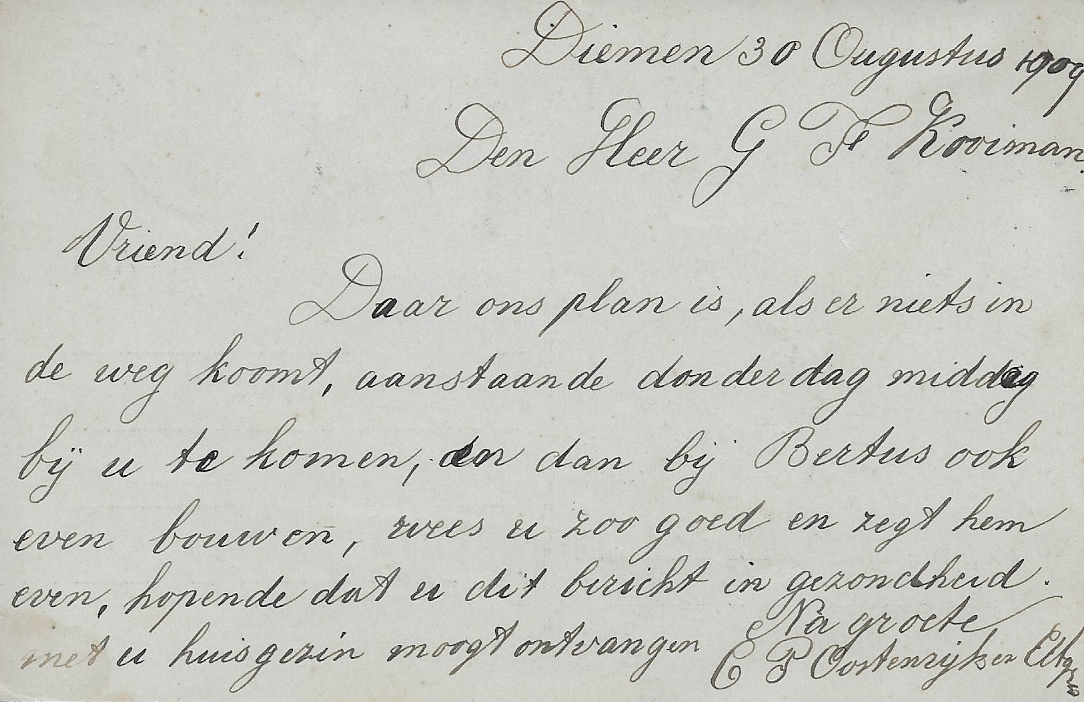 Diemen 30 Augustus 1909
Den Heer G Fs Kooiman
Vriend!
Daar ons plan is, als er niets in
de weg koomt, aanstaande donderdag middag
bij u te komen, en dan bij Bertus ook
even bouwen, wees u zoo goed en zegt hem
even, hopende dat u dit bericht in gezondheid.
met u huisgezin moogt ontvangen
Na groete
C P Oostenrijker